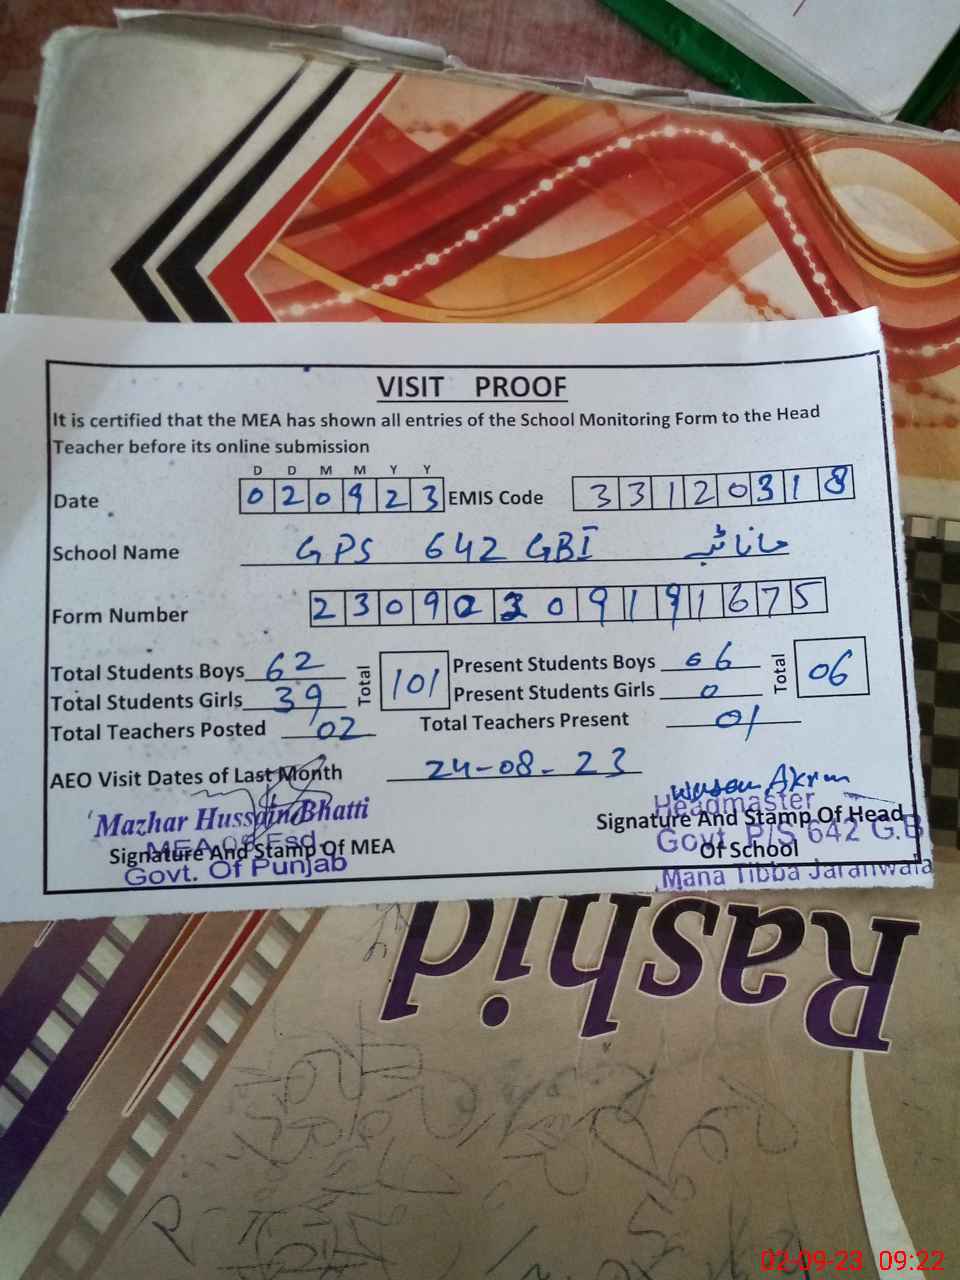 VISIT PROOF
It is certified that the MEA has shown all entries of the School Monitoring Form to the Head
Teacher before its online submission
D D M M Y Y
Date 0 2 0 9 2 3 EMIS Code 3 3 1 2 0 3 1 8
School Name GPS 642 GBI
Form Number 2 3 0 9 0 2 3 0 9 1 9 1 6 7 5
Total Students Boys 62 Total 101 Present Students Boys 06 Total 06
Total Students Girls 39 Present Students Girls 0
Total Teachers Posted 02 Total Teachers Present 01
AEO Visit Dates of Last Month 24-08-23
Mazhar Hussain Bhatti
Signature And Stamp Of MEA
Govt. Of Punjab
Akram
Headmaster
Signature And Stamp Of Head
Govt. P/S 642 G.B
Of School
Mana Tibba Jaranwala
Rashid
02-09-23 09:22